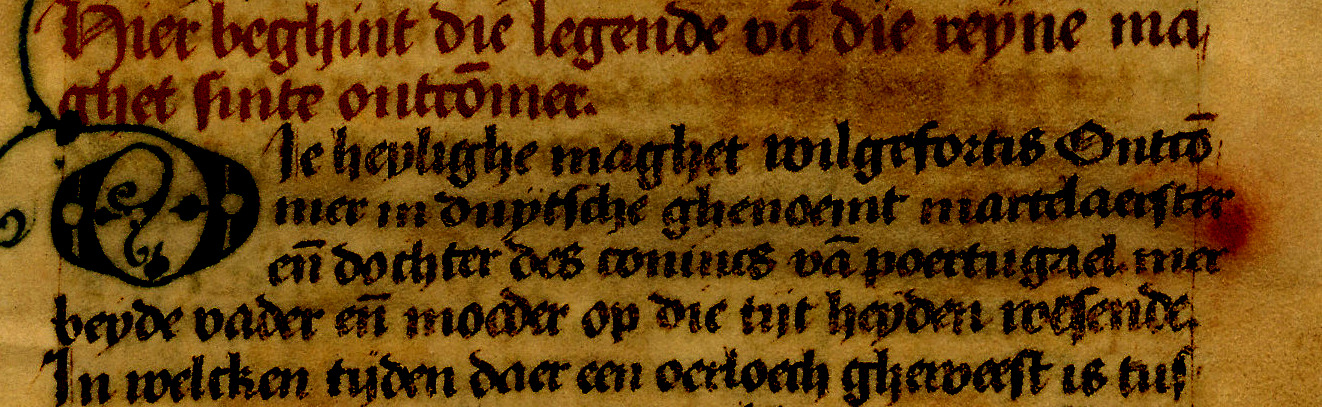 Hier beghint die legende vā die reyne ma
ghet sinte ontcōmer.
Die heylighe maghet wilgefortis Ontcō
mer in duytsche ghenoemt martelaerster
eñ dochter des conincs vā poertugael. mer
beyde vader eñ moeder op die tijt heyden wesende.
In welcken tijden daer een oerloech gheweest is tus